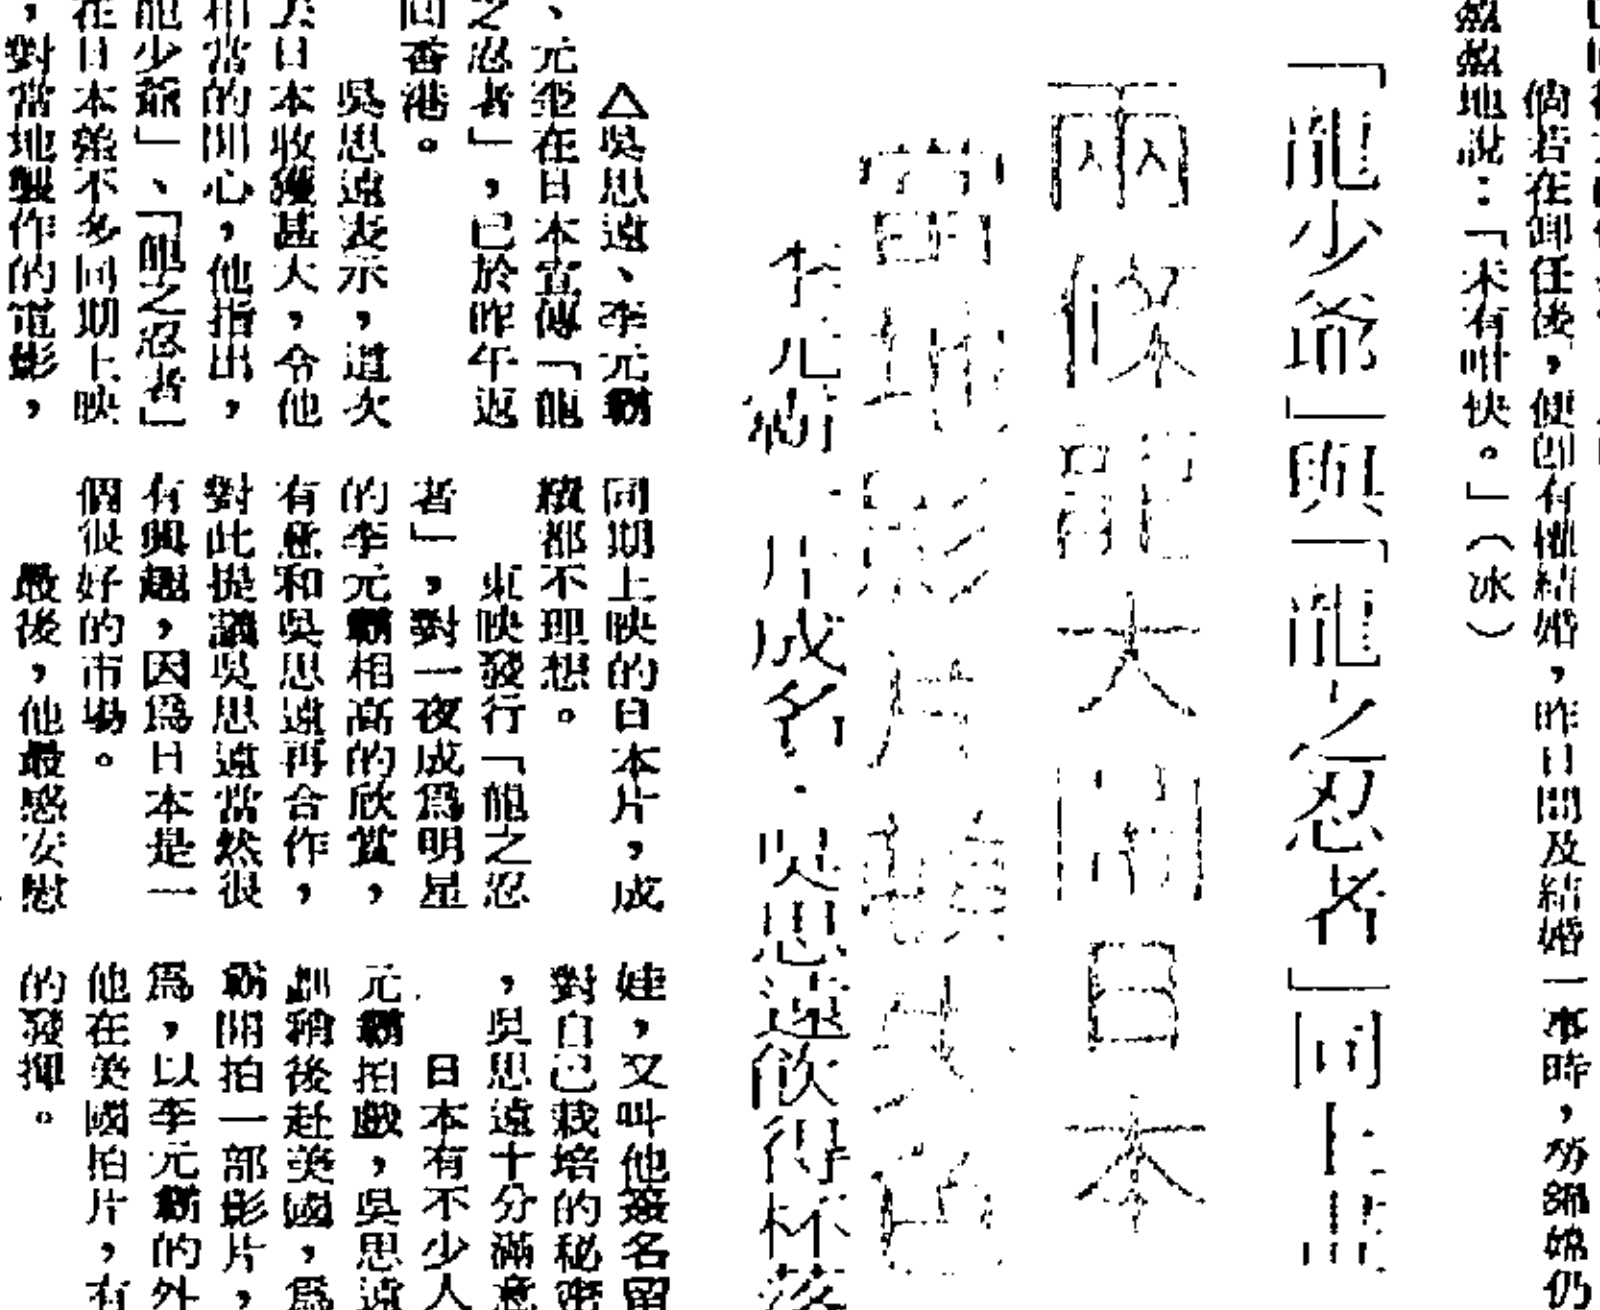 倘若在卸任後，便即有權結婚，昨日問及結婚一事時，
盈盈地說：「未有咁快。」（冰）
「龍少爺」與「龍之忍者」同上
兩條龍大鬧日本
當地影片
李元霸一片成名．吳思遠飲得杯落
△吳思遠、李元霸
、元奎在日本宣傳「龍
之忍者」，已於昨午返
回香港。
吳思遠表示，這次
去日本收穫甚大，令他
相當的開心，他指出，
龍少爺」、「龍之忍者」
在日本差不多同期上映
，對當地製作的電影，
同期上映的日本片，成
績都不理想。
東映發行「龍之忍
者」，對一夜成爲明星
的李元霸相高的欣賞，
有意和吳思遠再合作，
對此提議吳思遠當然很
有興趣，因爲日本是一
個很好的市場。
最後，他最感安慰
娃，又叫他簽名留
對自己栽培的秘密
，吳思遠十分滿意
日本有不少人
元霸拍戲，吳思遠
稍後赴美國，爲
霸開拍一部影片，
爲，以李元霸的外
他在美國拍片，有
的發揮。